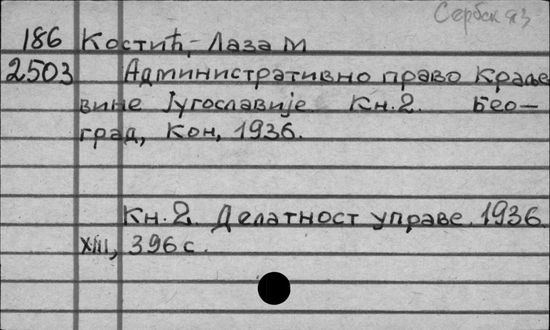 Сербск яз
186 Костић, Лаза М
2503 Административно право Краље
вине Југославије. Кн. 2. Бео-
град, Кон, 1936.
Кн. 2. Делатност управе. 1936.
XIII, 396 с.